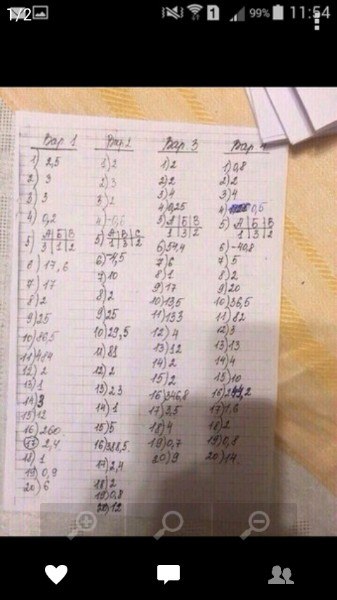 1/2
99% 11:54
Вар 1
1) 2,5
2) 3
3) 3
4) 0,2
5) А|Б|В
3|1|2
6) 17,6
7) 17
8) 2
9) 25
10) 80,5
11) 414
12) 2
13) 1
14) 3
15) 12
16) 260
17) 2,4
18) 1
19) 0,9
20) 6
Вар 2
1) 2
2) 3
3) 2
4) -0,6
5) А|В|С
1|3|2
6) -1,5
7) 10
8) 2
9) 25
10) 29,5
11) 81
12) 2
13) 23
14) 1
15) 5
16) 388,5
17) 2,4
18) 2
19) 0,8
20) 12
Вар 3
1) 2
2) 2
3) 4
4) 0,25
5) А|Б|В
1|3|2
6) 54,4
7) 6
8) 1
9) 17
10) 13,5
11) 133
12) 4
13) 32
14) 2
15) 2
16) 346,8
17) 3,5
18) 4
19) 0,7
20) 9
1) 0,8
2) 2
3) 4
4) 0,5
5) А|Б|В
1|2|3
6) -40,8
7) 5
8) 2
9) 20
10) 36,5
11) 82
12) 3
13) 13
14) 4
15) 10
17) 1,6
18) 2
19) 0,8
20) 14